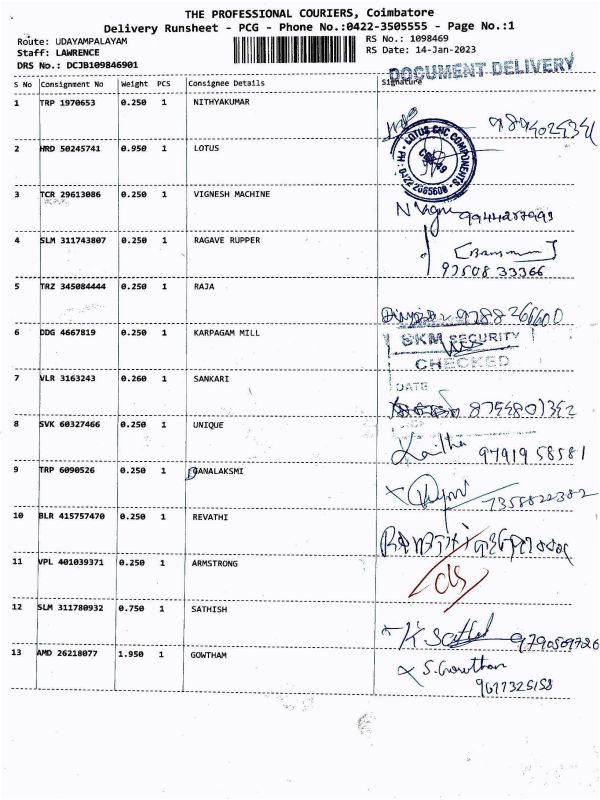 THE PROFESSIONAL COURIERS, Coimbatore
Delivery Runsheet - PCG - Phone No.:0422-3505555 - Page No.:1
Route: UDAYAMPALAYAM RS No.: 1098469
Staff: LAWRENCE RS Date: 14-Jan-2023
DRS No.: DCJB109846901
DOCUMENT DELIVERY
S No Consignment No Weight PCS Consignee Details Signature
1 TRP 1970653 0.250 1 NITHYAKUMAR
2 HRD 50245741 0.950 1 LOTUS
LOTUS CNC COMPONENTS
PH: 0422 2665608
3 TCR 29613086 0.250 1 VIGNESH MACHINE
4 SLM 311743807 0.250 1 RAGAVE RUPPER
97508 33366
5 TRZ 345084444 0.250 1 RAJA
9788266600
6 DDG 4667819 0.250 1 KARPAGAM MILL
SKM SECURITY
CHECKED
DATE
7 VLR 3163243 0.260 1 SANKARI
8754801362
8 SVK 60327466 0.250 1 UNIQUE
97919 58581
9 TRP 6090526 0.250 1 DANALAKSMI
7358822382
10 BLR 415757470 0.250 1 REVATHI
11 VPL 401039371 0.250 1 ARMSTRONG
12 SLM 311780932 0.750 1 SATHISH
9790509726
13 AMD 26218077 1.950 1 GOWTHAM
S. Gowtham
9677325158